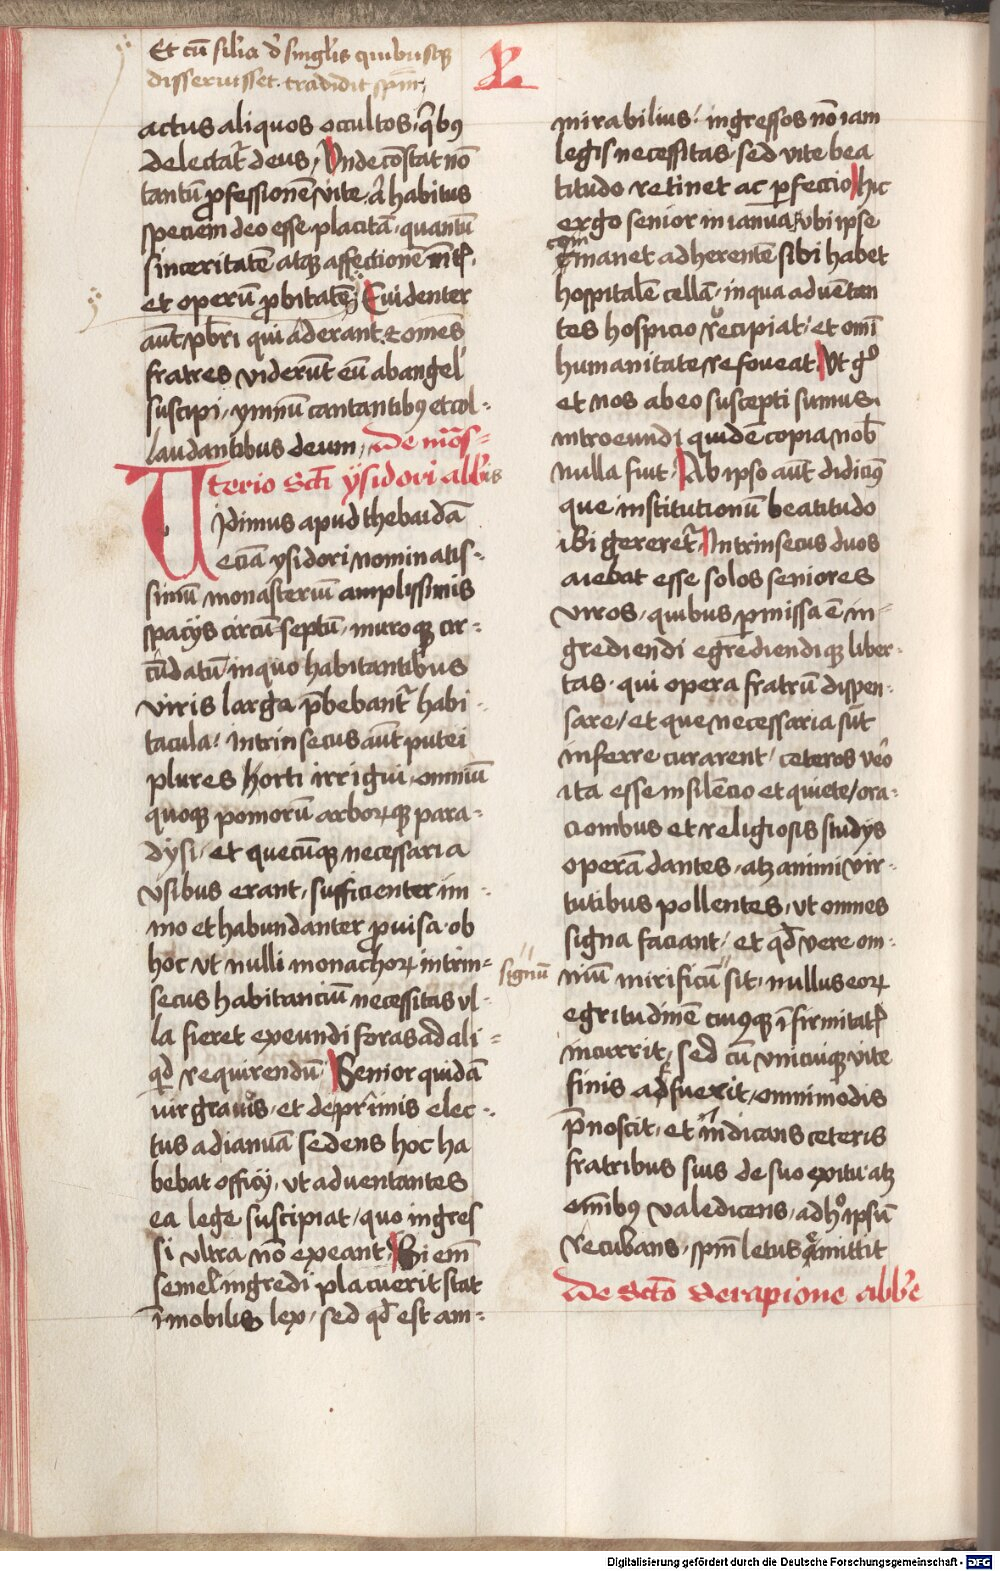 Et cū sil'ia d' singl'is quibusq
disseruisset. tradidit spm̄.
L
actus aliquos occultos, qͥbꝯ
delectat̄ deus, Vnde ꝯstat nō
tantū ꝓfessionē vite, aͭ habitus
speciem deo esse placitā, quantū
sinceritatē atqꝫ affectionē
et operū ꝓbitatē, Euidenter
aūt, pb̄ri qui aderant, et omēs
fratres viderūt eū ab angel'
suscipi, ymnū cantantibꝯ et col-
laudantibus deum, De mōs-
terio Sc̄ti ysidori abb'is
Vidimus apud thebaidā
eciā ysidori nominatis-
simū monasteriū amplissimis
spacijs circū septū, muroqꝫ cir-
cūdatū, in quo habitantibus
viris larga p̄bebant̄ habi-
tacula, Intrinsecus aūt putei
plures horti irrigui, omniū
quoqꝫ pomorū arborꝫqꝫ para-
dysi, et quecūqꝫ necessaria
vsibus erant, sufficienter im-
mo et habundanter ꝓuisa, ob
hoc vt nulli monachoꝝ intrin-
secus habitanciū necessitas vl-
la fieret exeundi foras ad ali-
qd̄ requirendū, Senior quidā
vir grauis, et de prīmis elec-
tus ad ianuā sedens hoc ha
bebat officij, vt aduentantes
ea lege suscipiat, quo ingres
si vltra nō exeant, Si em̄
semel ingredi placuerit stat
īmobilis lex, sed qd̄ est am-
mirabilius, ingressos nō iam
legis necessitas, sed vite bea
titudo retinet ac ꝑfeccio, hic
ergo senior in ianua, vbi ipse
com
manet adherentē sibi habet
hospitalē cellā, in qua aduētan
tes hospicio recipiat, et omī
humanitate refoueat, Vt gͦ
et nos ab eo suscepti sumus,
introeundi quidē copia nob̄
nulla fuit, Ab ipso aūt didiciꝯ
que institutionū beatitudo
ibi gereret̄, Intrinsecus duos
aiebat esse solos seniores
viros, quibus ꝑmissa ē in-
grediendi egrediendiqꝫ liber-
tas, qui opera fratrū dispen-
sare, et que necessaria sūt
inferre curarent, ceteros v̄o
ita esse in silēcio et quiete, ora-
cionibus et religiosis studijs
operā dantes, atꝫ animi vir-
tutibus pollentes, vt omnes
signa faciant, et qd̄ vere om-
signū
niū mirificū sit, nullus eoꝝ
egritudinē cuiꝯqꝫ īfirmitatꝭ
incurrit, sed cū vnicuiqꝫ vite
finis adfuerit, omnimodis
p̄noscit, et indicans ceteris
fratribus suis de suo exitu, atꝫ
omībꝯ valedicens, ad hͦ ipsū
recubans, spm̄ letus amittit
De Sctō Serapione abb'e
Digitalisierung gefördert durch die Deutsche Forschungsgemeinschaft - DFG